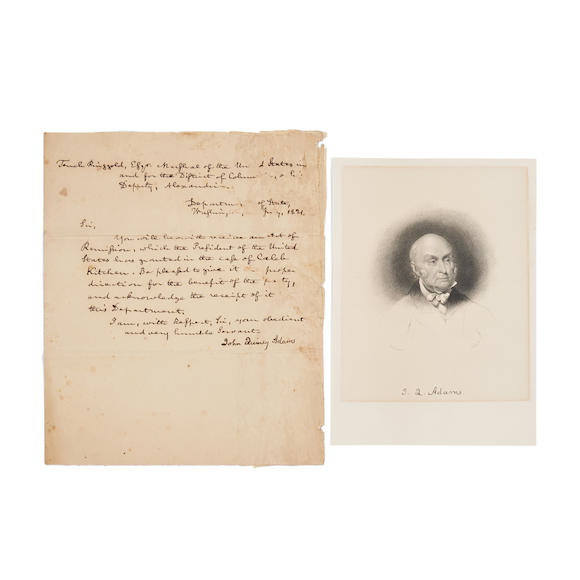 Tench Ringgold, Esqr. Marshal of the Un d States in
and for the District of Colum , or his
Deputy, Alexandria.
Departmen of State,
Washing , 1821.
Sir,
You will herewith receive an Act of
Remission, which the President of the United
States has granted in the case of Caleb
Kitchen. Be pleased to give it a proper
direction for the benefit of the party,
and acknowledge the receipt of it
this Department.
I am, with Respect, Sir, your obedient
and very humble Servant.
John Quincy Adams
J. Q. Adams.